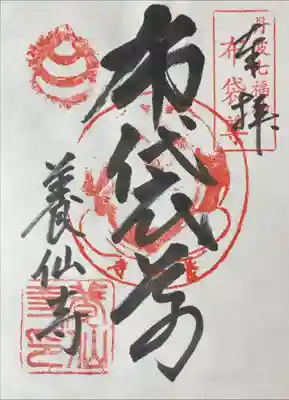 奉拝
丹波七福
布袋尊
布袋尊
養仙寺